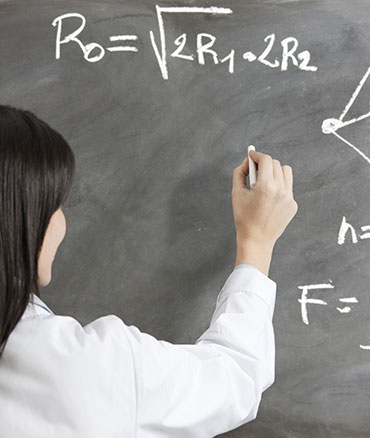 R₀ = √2R₁ · 2R₂
n=
F =